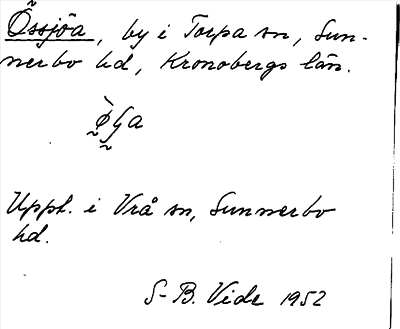 Össjöa, by i Torpa sn, Sun-
nerbo hd, Kronobergs län.
Uppl. i Vrå sn, Sunnerbo
hd.
S-B. Vide 1952